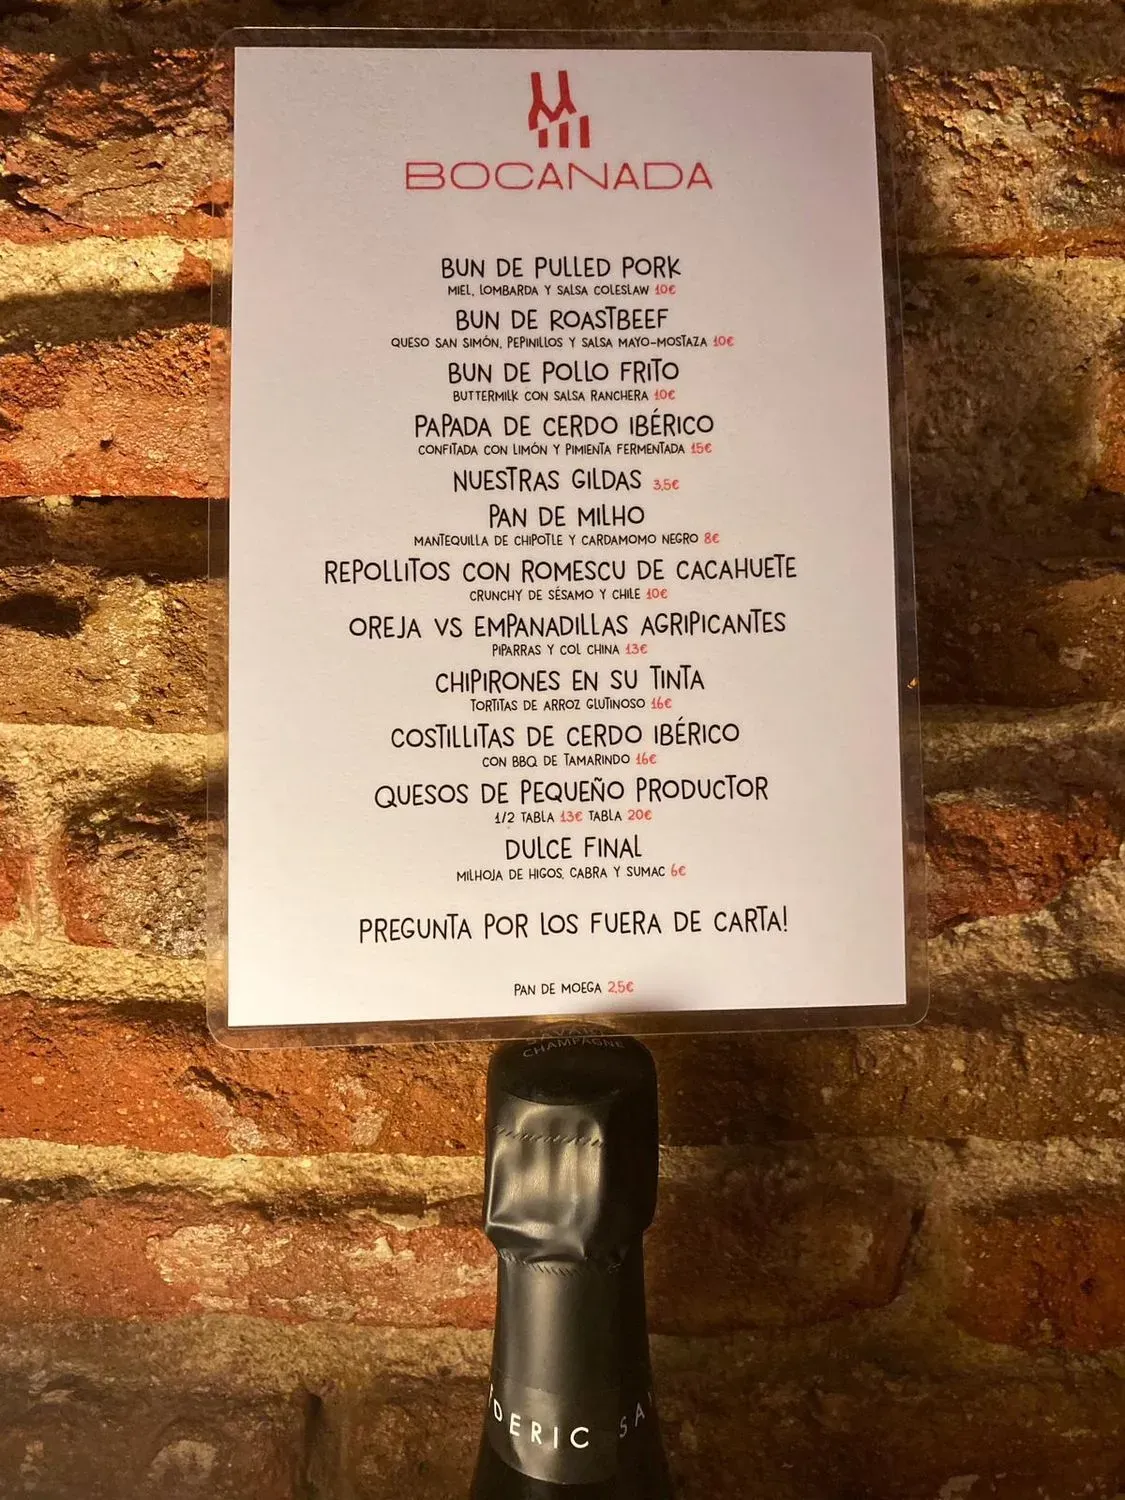 BOCANADA
BUN DE PULLED PORK
MIEL, LOMBARDA Y SALSA COLESLAW 10€
BUN DE ROASTBEEF
QUESO SAN SIMÓN, PEPINILLOS Y SALSA MAYO-MOSTAZA 10€
BUN DE POLLO FRITO
BUTTERMILK CON SALSA RANCHERA 10€
PAPADA DE CERDO IBÉRICO
CONFITADA CON LIMÓN Y PIMIENTA FERMENTADA 15€
NUESTRAS GILDAS 3,5€
PAN DE MILHO
MANTEQUILLA DE CHIPOTLE Y CARDAMOMO NEGRO 8€
REPOLLITOS CON ROMESCU DE CACAHUETE
CRUNCHY DE SÉSAMO Y CHILE 10€
OREJA VS EMPANADILLAS AGRIPICANTES
PIPARRAS Y COL CHINA 13€
CHIPIRONES EN SU TINTA
TORTITAS DE ARROZ GLUTINOSO 16€
COSTILLITAS DE CERDO IBÉRICO
CON BBQ DE TAMARINDO 16€
QUESOS DE PEQUEÑO PRODUCTOR
1/2 TABLA 13€ TABLA 20€
DULCE FINAL
MILHOJA DE HIGOS, CABRA Y SUMAC 6€
PREGUNTA POR LOS FUERA DE CARTA!
PAN DE MOEGA 2,5€
CHAMPAGNE
DERIC SA